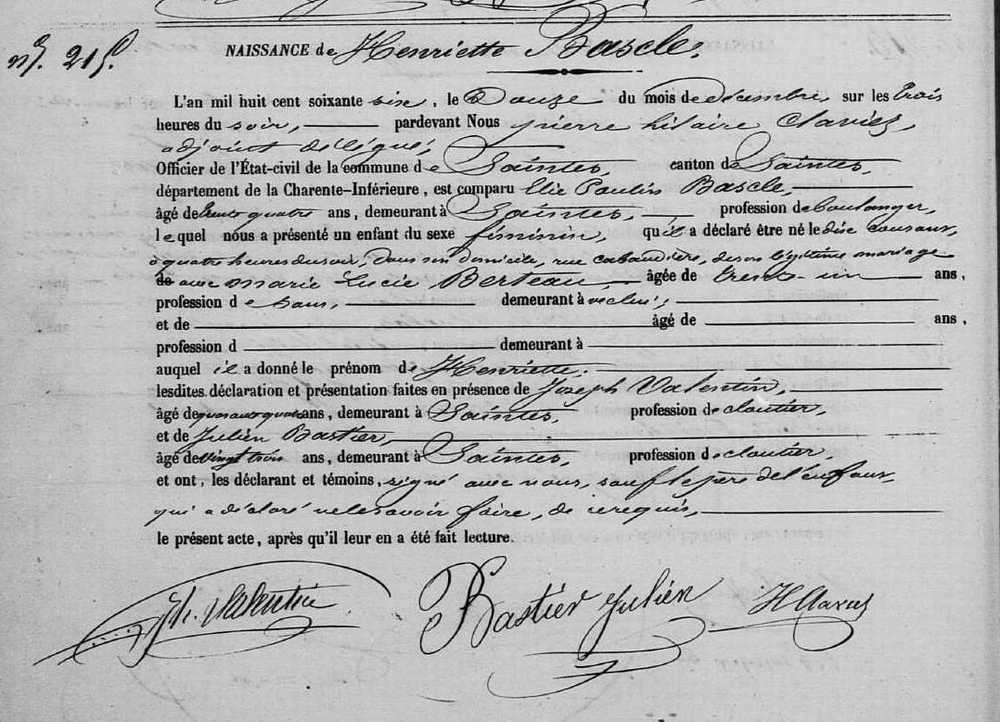 nº. 215.
NAISSANCE de Henriette Bascle.
L'an mil huit cent soixante six, le Douze du mois de décembre, sur les trois
heures du soir, pardevant Nous pierre hilaire
adjoint délégué,
Officier de l'État-civil de la commune de Saintes, canton de Saintes,
département de la Charente-Inférieure, est comparu Elie Paulin Bascle,
âgé de trente quatre ans, demeurant à Saintes, profession de boulanger,
lequel nous a présenté un enfant du sexe féminin, qu'il a déclaré être né le dix courant,
à quatre heures du soir, dans son domicile, rue cabaudière, de son légitime mariage
de avec marie Lucie Berteau, âgée de trente-un ans,
profession de sans, demeurant à
et de âgé de ans,
profession d demeurant à
auquel il a donné le prénom de Henriette.
lesdites déclaration et présentation faites en présence de Joseph Valentin,
âgé de quarante quatre ans, demeurant à Saintes, profession de cloutier,
et de Julien Bastier,
âgé de vingt trois ans, demeurant à Saintes, profession de cloutier,
et ont, les déclarant et témoins, signé avec nous, sauf le père de l'enfant,
qui a déclaré ne le savoir faire, de ce requis,
le présent acte, après qu'il leur en a été fait lecture.
Jh. Valentin Bastier Julien